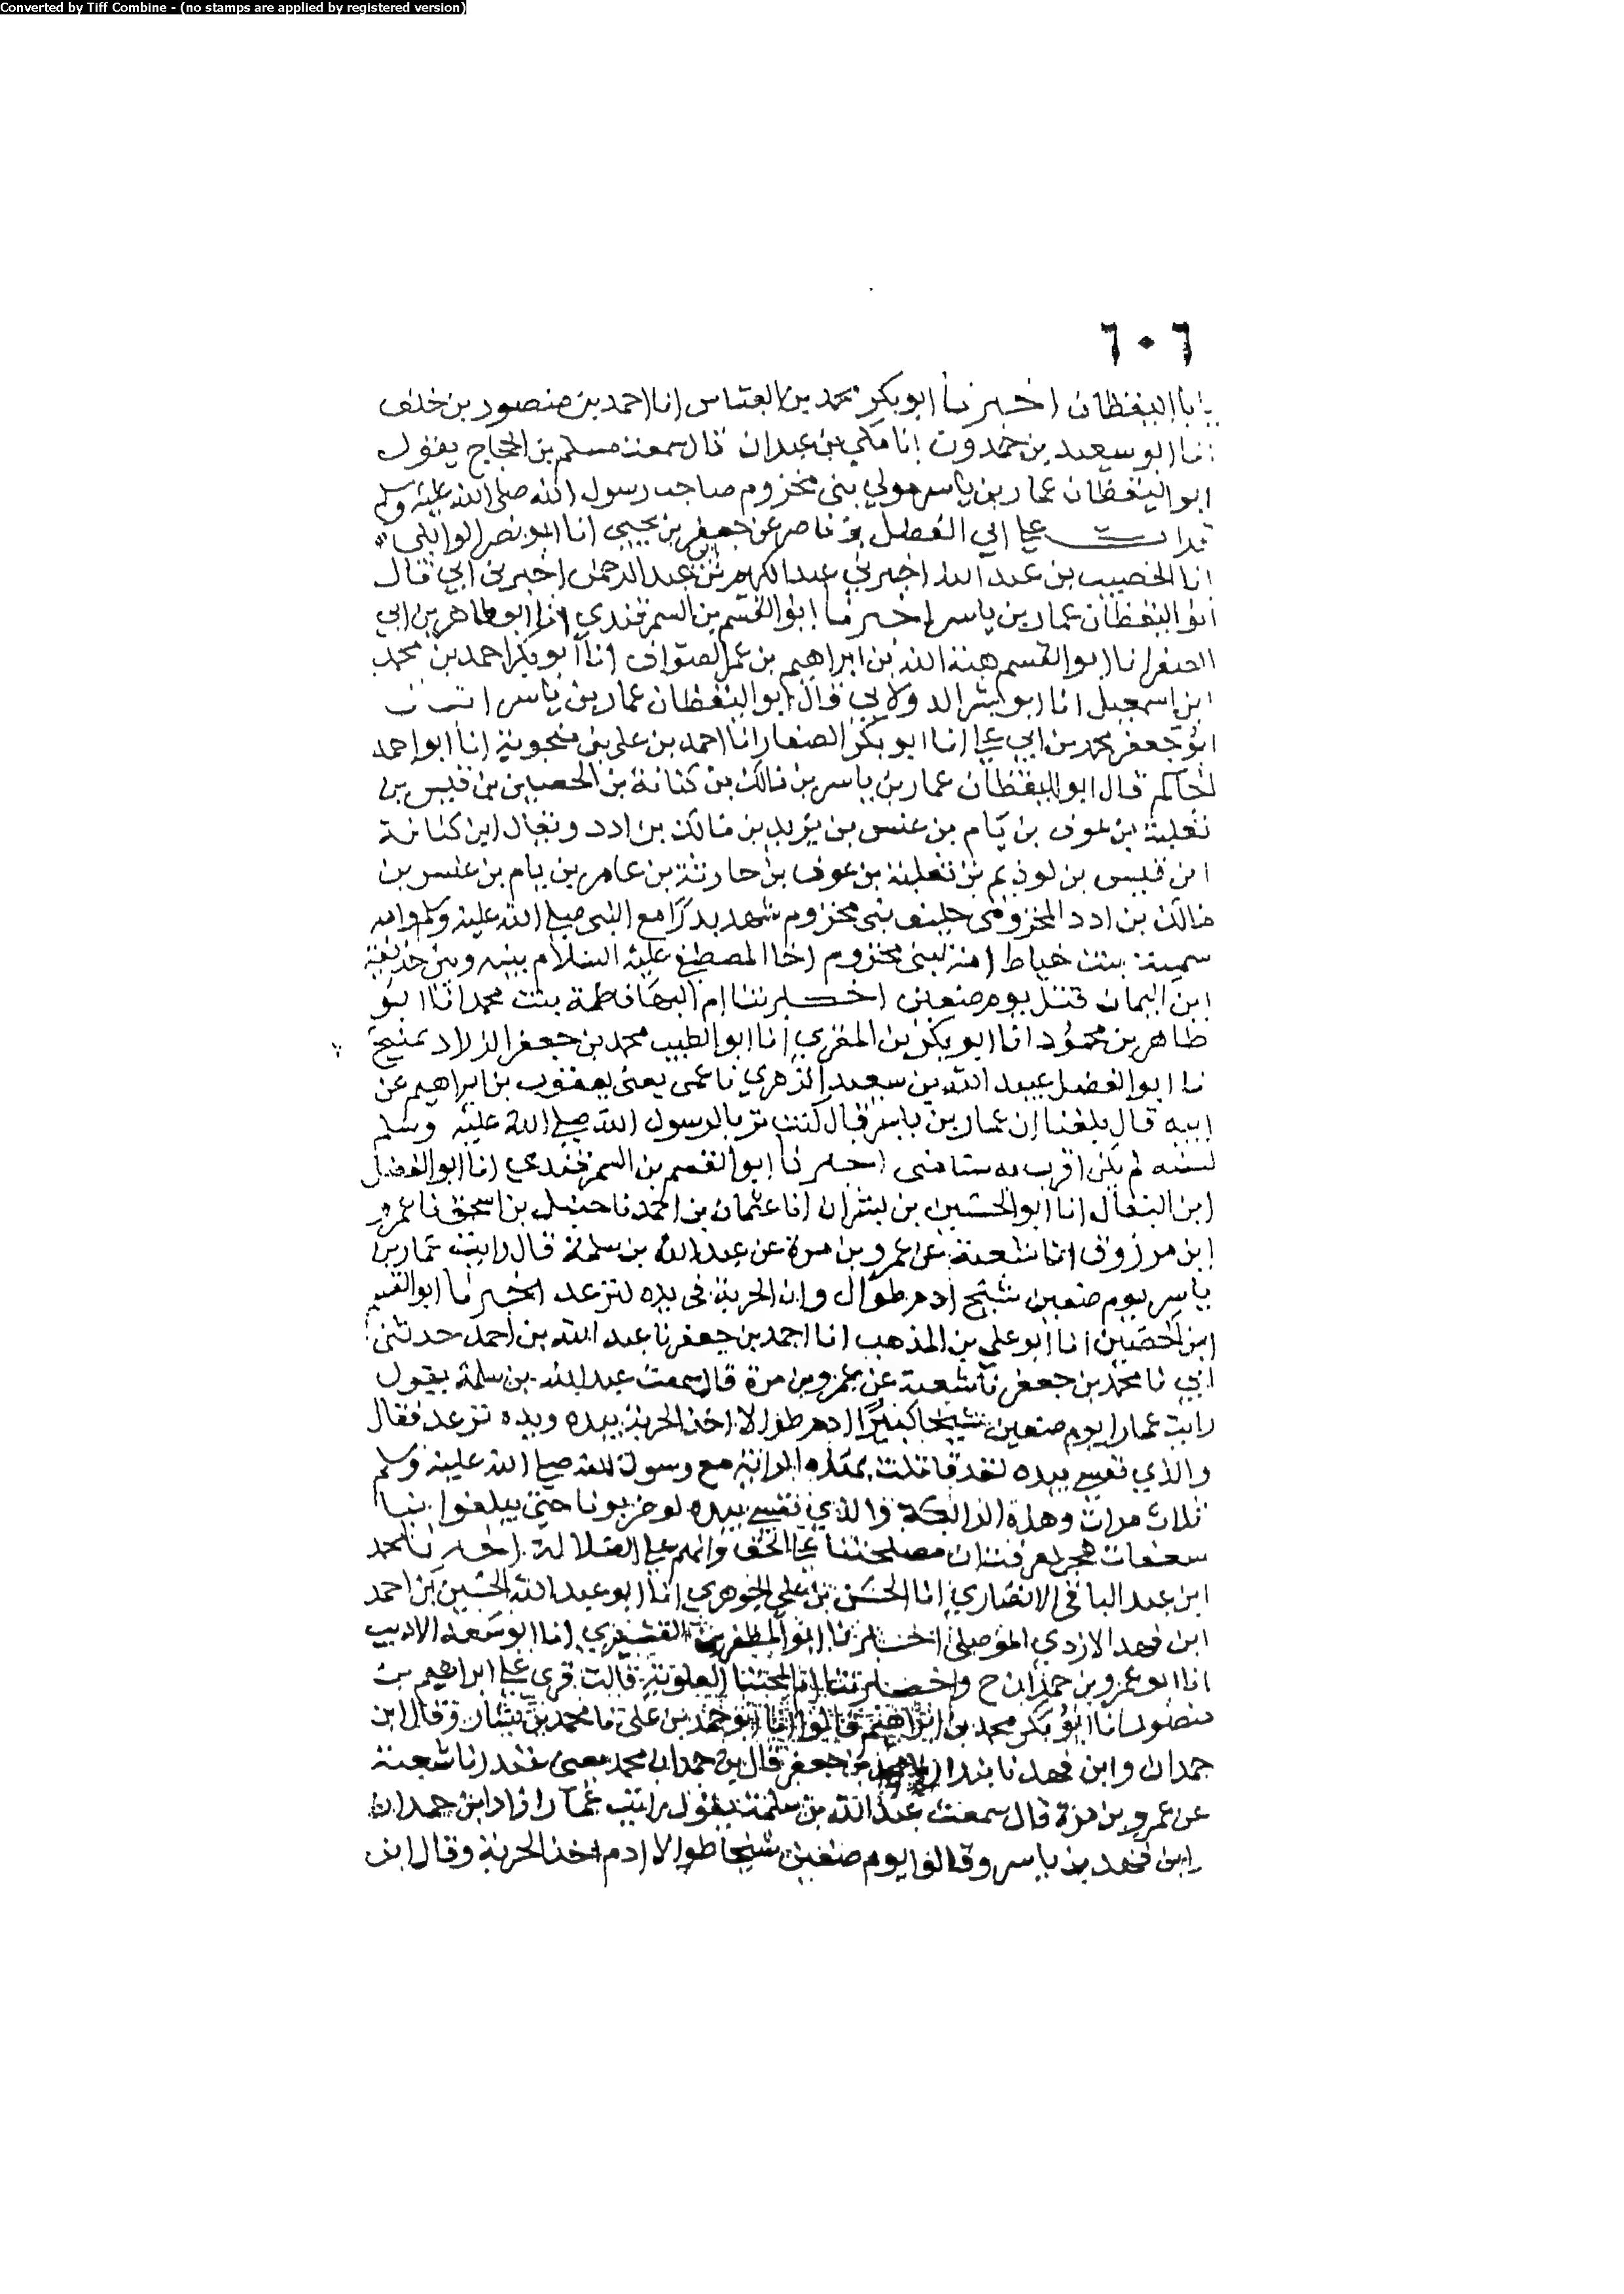 Converted by Tiff Combine - (no stamps are applied by registered version)
٦٠٦
يا ابا اليقظان اخبرنا ابو بكر محمد بن العباس انا احمد بن منصور بن خلف
انا ابو سعيد بن حمدون انا مكي بن عبدان قال سمعت مسلم بن الحجاج يقول
ابو اليقظان عمار بن ياسر مولي بني مخزوم صاحب رسول الله صلى الله عليه وسلم
قرات على ابي الفضل بن ناصر عن جعفر بن يحيى انا ابو نصر الوايلي
انا الخصيب بن عبد الله اخبرني عبد الكريم بن ابي عبد الرحمن اخبرني ابي قال
ابو اليقظان عمار بن ياسر اخبرنا ابو القسم بن السمرقندي انا ابو طاهر بن ابي
الصقر انا ابو القسم هبة الله بن ابراهيم بن عمر الصواف انا ابو بكر احمد بن محمد
ابن اسمعيل انا ابو بشر الدولابي قال ابو اليقظان عمار بن ياسر
ابو جعفر محمد بن ابي علي انا ابو بكر الصفار انا احمد بن علي بن منجوية انا ابو احمد
الحاكم قال ابو اليقظان عمار بن ياسر بن مالك بن كنانة بن الحصين بن قيس بن
ثعلبة بن عوف بن يام بن عنس بن يزيد بن مالك بن ادد ويقال ابن كنانة
ابن قيس بن لوذيم بن ثعلبة بن عوف بن حارثة بن عامر بن يام بن عنس بن
مالك بن ادد المخزومي حليف بني مخزوم شهد بدرا مع النبي صلى الله عليه وسلم وامه
سمية بنت خباط امة لبني مخزوم اخا المصطفى عليه السلام بينه وبين حذيفة
ابن اليمان قتل يوم صفين اخبرتنا ام البها فاطمة بنت محمد انا ابو
طاهر بن محمود انا ابو بكر بن المقري انا ابو الطيب محمد بن جعفر الزراد بمنبج
نا ابو الفضل عبيد الله بن سعيد الزهري نا عمي يعني يعقوب بن ابراهيم عن
ابيه قال بلغنا ان عمار بن ياسر قال كنت تربا لرسول الله صلى الله عليه وسلم
لسنه لم يكن اقرب به سنا مني اخبرنا ابو القسم بن السمرقندي انا ابو الفضل
ابن البقال انا ابو الحسين بن بشران انا عثمان بن احمد نا حنبل بن اسحق نا عمرو
ابن مرزوق انا شعبة عن عمرو بن مرة عن عبد الله بن سلمة قال رايت عمار بن
ياسر يوم صفين شيخ ادم طوال وان الحربة في يده لترعد اخبرنا ابو القسم
ابن الحصين انا ابو علي بن المذهب انا احمد بن جعفر نا عبد الله بن احمد حدثني
ابي نا محمد بن جعفر نا شعبة عن عمرو بن مرة قال سمعت عبد الله بن سلمة يقول
رايت عمارا يوم صفين شيخا كبيرا ادم طوالا اخذ الحربة بيده ويده ترعد فقال
والذي نفسي بيده لقد قاتلت بهذه الراية مع رسول الله صلى الله عليه وسلم
ثلاث مرات وهذه الرابعة والذي نفسي بيده لو ضربونا حتى يبلغوا بنا
سعفات هجر لعرفت ان مصلحتنا على الحق وانهم على الضلالة اخبرنا محمد
ابن عبد الباقي الانصاري انا الحسن بن علي الجوهري انا ابو عبد الله الحسين بن احمد
ابن فهد الازدي الموصلي اخبرنا ابو المظفر بن القشيري انا ابو سعد الاديب
انا ابو عمرو بن حمدان ح واخبرتنا ام المجتبا العلوية قالت قري على ابراهيم بن
منصور انا ابو بكر محمد بن ابراهيم قالوا انا ابو احمد بن علي نا محمد بن بشار وقال ابن
حمدان وابن فهد نا بندار نا محمد بن جعفر قال بن حمدان محمد يعني غندر نا شعبة
عن عمرو بن مرة قال سمعت عبد الله بن سلمة يقول رايت عمارا زاد ابن حمدان
وابن فهد بن ياسر وقالوا يوم صفين شيخا طوالا ادم اخذ الحربة وقال ابن